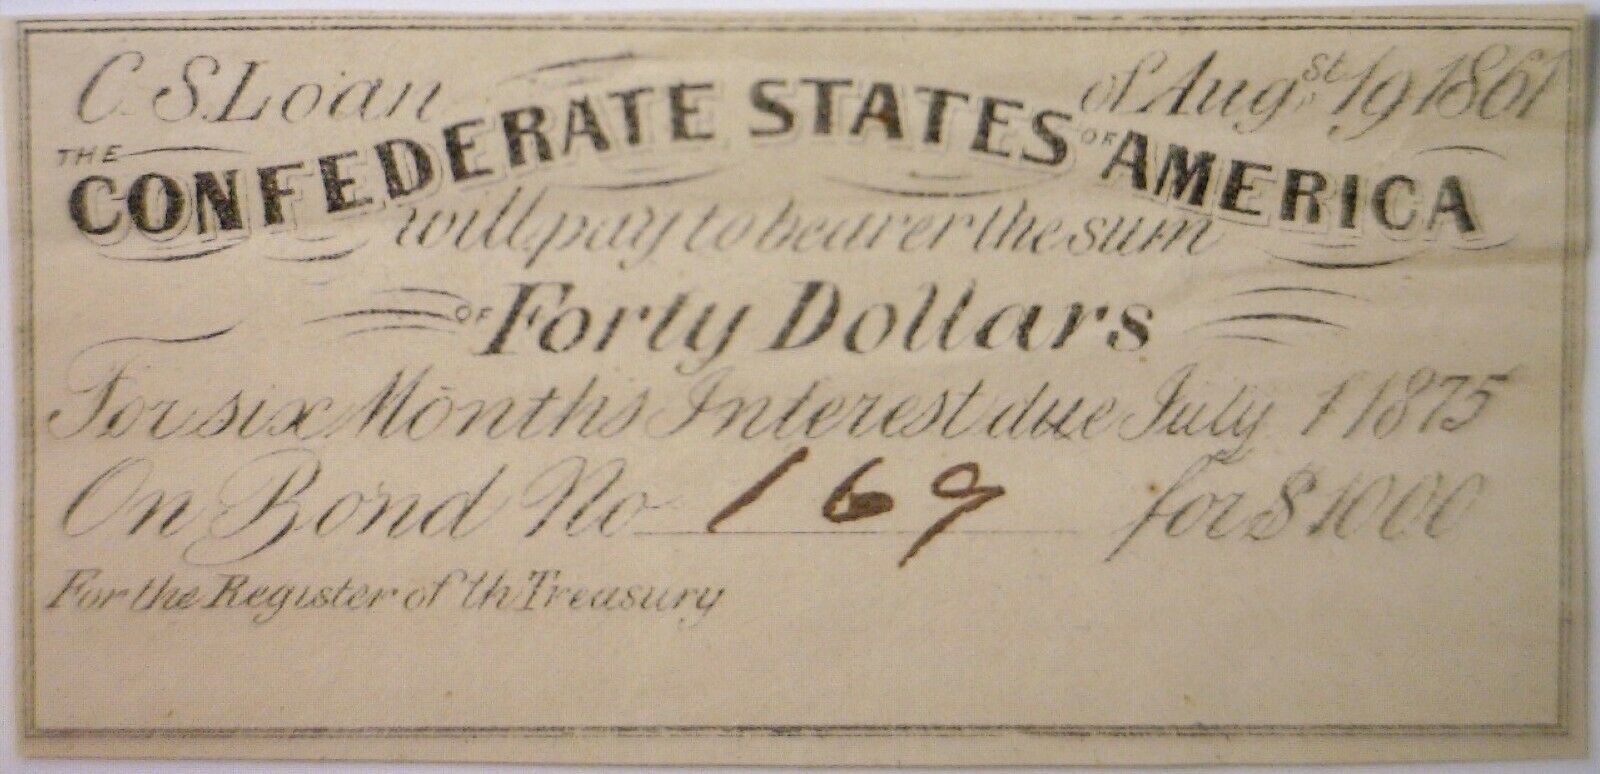 C. S. Loan of Augst 19 1861
THE CONFEDERATE STATES OF AMERICA
will pay to bearer the sum
OF Forty Dollars
For six Months Interest due July 1 1875
On Bond No 169 for $1000
For the Register of th Treasury